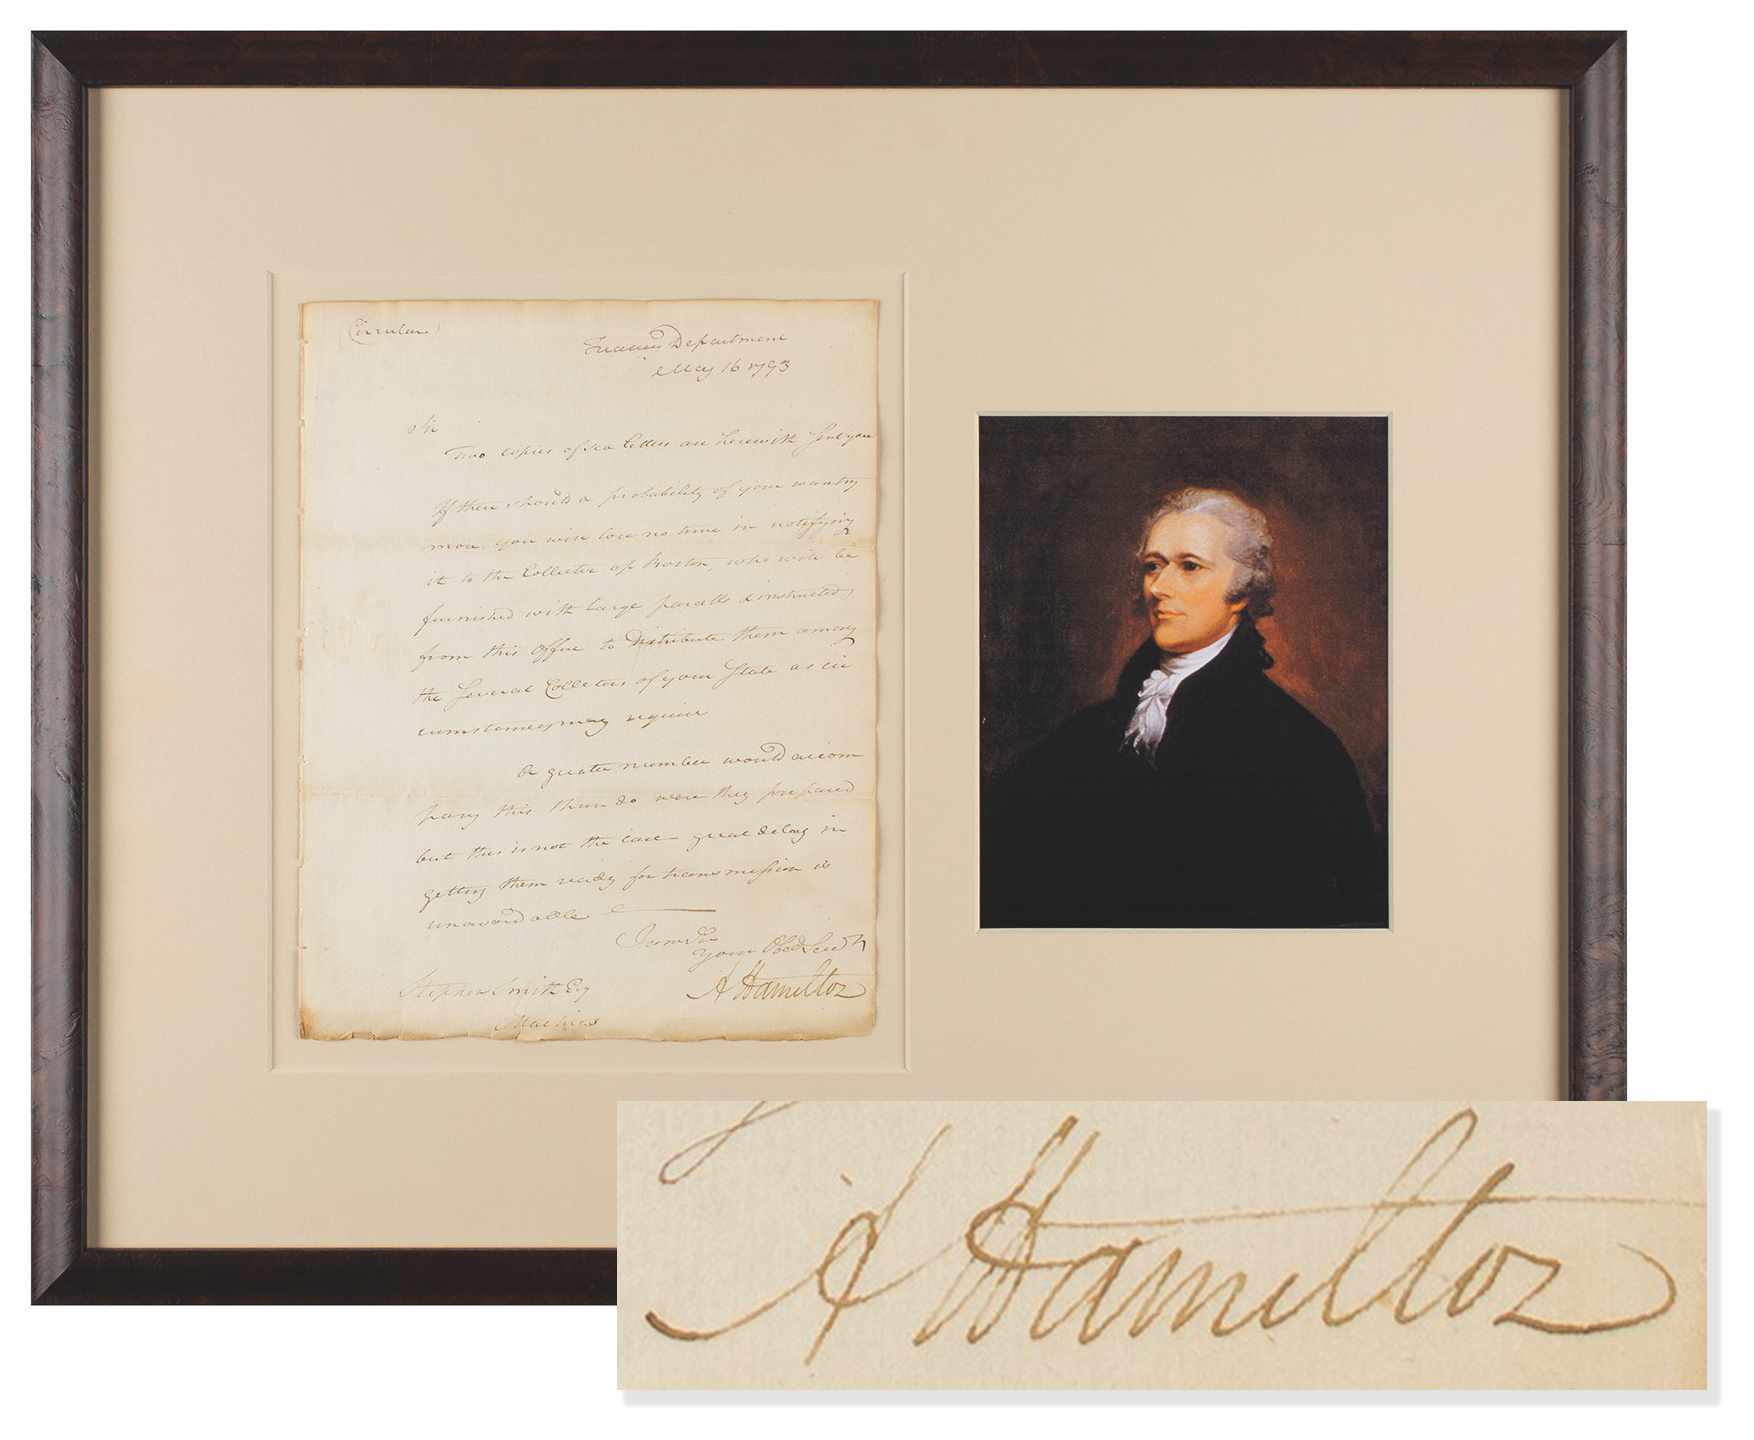 (Circular)
Treasury Department
May 16 1793
Sir
Two copies of sea letters are herewith sent you
If there should a probability of your wanting
more, you will lose no time in notifying
it to the Collector of Boston, who will be
furnished with large parcells & instructed,
from this Office to Distribute them among
the Several Collectors of your State as cir
cumstances may require
A greater number would accom
pany this than do were they prepared
but this is not the case great delay in
getting them ready for transmission is
unavoidable
I am Sir
Your Obed Servt
A Hamilton
Stephen Smith Esq
Machias
A Hamilton